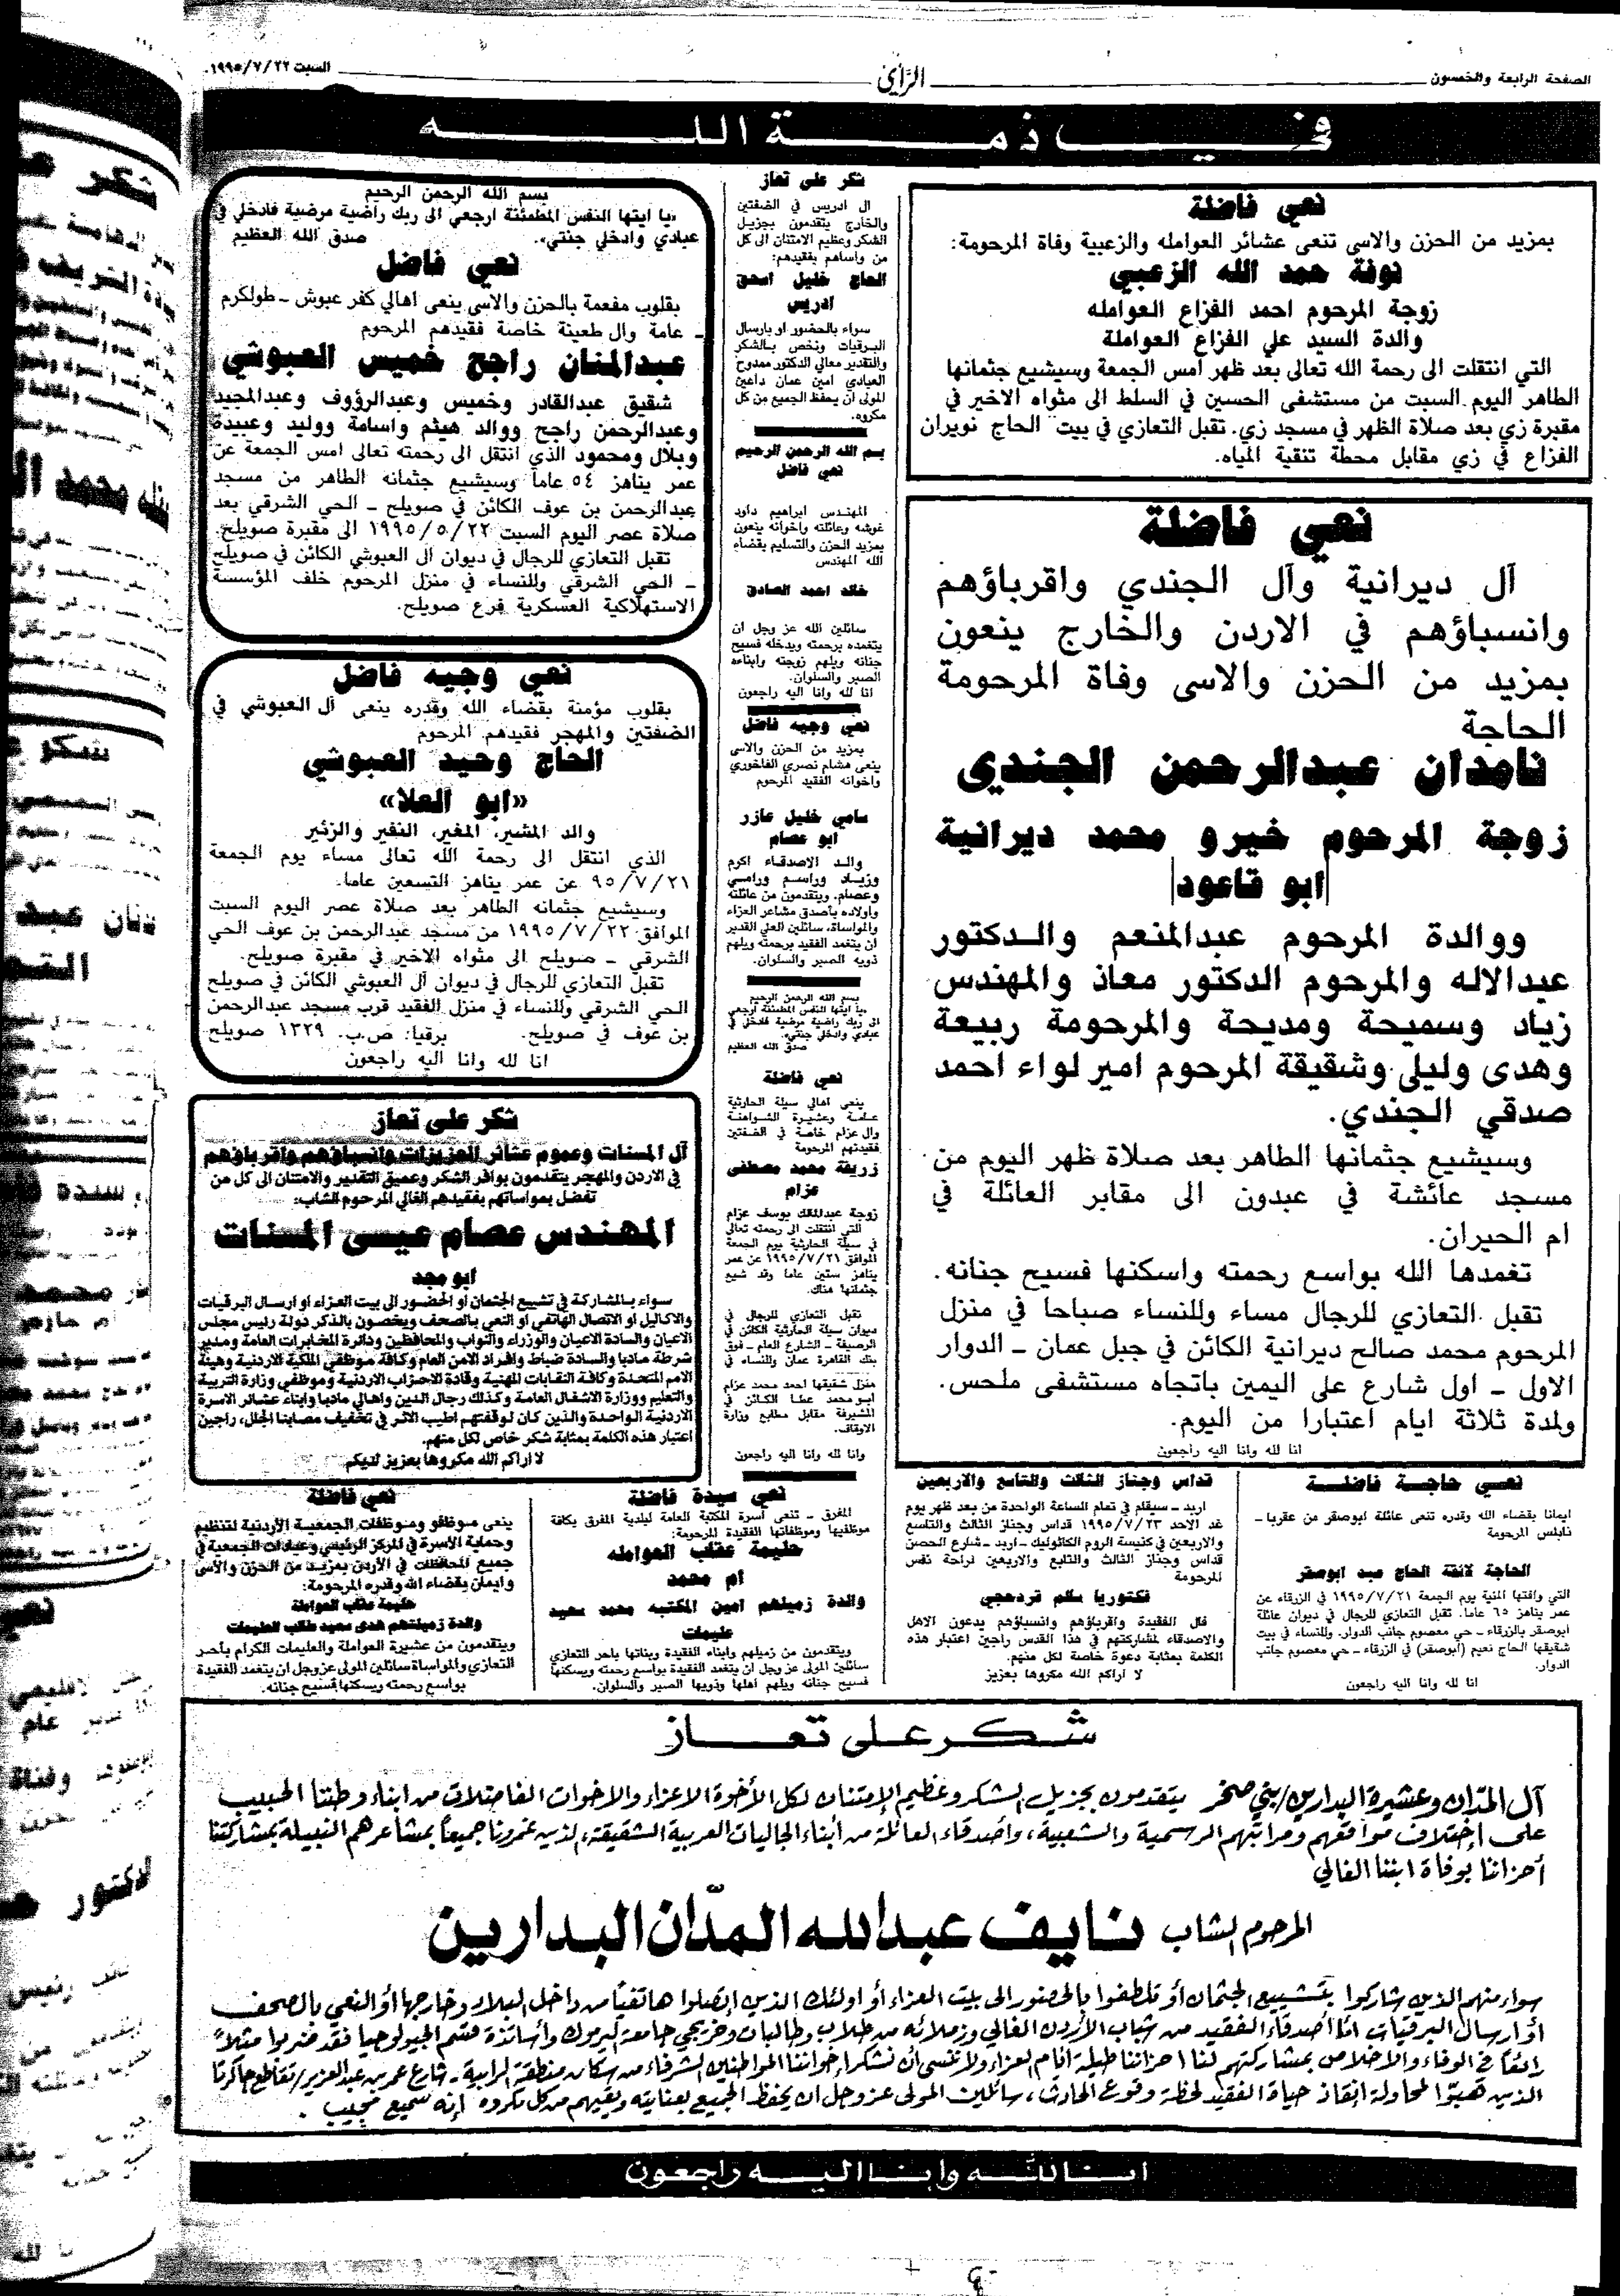 الصفحة الرابعة والخمسون
الرأي
السبت ٢٢/٧/١٩٩٥.
في ذمة الله
نعي فاضلة
بمزيد من الحزن والاسى تنعى عشائر العوامله والزعبية وفاة المرحومة:
نوفة حمد الله الزعبي
زوجة المرحوم احمد الفزاع العوامله
والدة السيد علي الفزاع العواملة
التي انتقلت الى رحمة الله تعالى بعد ظهر امس الجمعة وسيشيع جثمانها
الطاهر اليوم السبت من مستشفى الحسين في السلط الى مثواه الاخير في
مقبرة زي بعد صلاة الظهر في مسجد زي. تقبل التعازي في بيت الحاج نويران
الفزاع في زي مقابل محطة تنقية المياه.
نعي فاضلة
آل ديرانية وآل الجندي واقرباؤهم
وانسباؤهم في الاردن والخارج ينعون
بمزيد من الحزن والاسى وفاة المرحومة
الحاجة
نامدان عبدالرحمن الجندي
زوجة المرحوم خيرو محمد ديرانية
|ابو قاعود|
ووالدة المرحوم عبدالمنعم والدكتور
عبدالاله والمرحوم الدكتور معاذ والمهندس
زياد وسميحة ومديحة والمرحومة ربيعة
وهدى وليلى وشقيقة المرحوم امير لواء احمد
صدقي الجندي.
وسيشيع جثمانها الطاهر بعد صلاة ظهر اليوم من
مسجد عائشة في عبدون الى مقابر العائلة في
ام الحيران.
تغمدها الله بواسع رحمته واسكنها فسيح جنانه.
تقبل التعازي للرجال مساء وللنساء صباحا في منزل
المرحوم محمد صالح ديرانية الكائن في جبل عمان - الدوار
الاول - اول شارع على اليمين باتجاه مستشفى ملحس.
ولمدة ثلاثة ايام اعتبارا من اليوم.
انا لله وانا اليه راجعون
شكر على تعاز
ال ادريس في الضفتين
والخارج يتقدمون بجزيل
الشكر وعظيم الامتنان الى كل
من واساهم بفقيدهم:
الحاج خليل اسحق
ادريس
سواء بالحضور او بارسال
البرقيات ونخص بالشكر
والتقدير معالي الدكتور ممدوح
العبادي امين عمان داعين
المولى ان يحفظ الجميع من كل
مكروه.
بسم الله الرحمن الرحيم
نعي فاضل
المهندس ابراهيم داود
غوشه وعائلته واخوانه ينعون
بمزيد الحزن والتسليم بقضاء
الله المهندس
خالد احمد الصادق
سائلين الله عز وجل ان
يتغمده برحمته ويدخله فسيح
جنانه ويلهم زوجته وابناءه
الصبر والسلوان.
انا لله وانا اليه راجعون
نعي وجيه فاضل
بمزيد من الحزن والاسى
ينعى هشام نصري الفاخوري
واخوانه الفقيد المرحوم
سامي خليل عازر
ابو عصام
والد الاصدقاء اكرم
وزياد وراسم ورامي
وعصام. ويتقدمون من عائلته
واولاده باصدق مشاعر العزاء
والمواساة، سائلين العلي القدير
ان يتغمد الفقيد برحمته ويلهم
ذويه الصبر والسلوان.
بسم الله الرحمن الرحيم
«يا ايتها النفس المطمئنة ارجعي
الى ربك راضية مرضية فادخلي في
عبادي وادخلي جنتي».
صدق الله العظيم
نعي فاضلة
ينعى اهالي سيلة الحارثية
عامة وعشيرة الشواهنة
وال عزام خاصة في الضفتين
فقيدتهم المرحومة
زريفة محمد مصطفى
عزام
زوجة عبدالملك يوسف عزام
التي انتقلت الى رحمته تعالى
في سيلة الحارثية يوم الجمعة
الموافق ٢١/٧/١٩٩٥ عن عمر
يناهز ستين عاما وقد شيع
جثمانها هناك.
تقبل التعازي للرجال في
ديوان سيلة الحارثية الكائن في
الرصيفة - الشارع العام - فوق
بنك القاهرة عمان وللنساء في
منزل شقيقها احمد محمد عزام
ابو محمد عطا الكائن في
المشيرفة مقابل مطابع وزارة
الاوقاف.
وانا لله وانا اليه راجعون
بسم الله الرحمن الرحيم
«يا ايتها النفس المطمئنة ارجعي الى ربك راضية مرضية فادخلي في
عبادي وادخلي جنتي». صدق الله العظيم
نعي فاضل
بقلوب مفعمة بالحزن والاسى ينعى اهالي كفر عبوش - طولكرم
- عامة وال طعينة خاصة فقيدهم المرحوم
عبدالمنان راجح خميس العبوشي
شقيق عبدالقادر وخميس وعبدالرؤوف وعبدالمجيد
وعبدالرحمن راجح ووالد هيثم واسامة ووليد وعبيدة
وبلال ومحمود الذي انتقل الى رحمته تعالى امس الجمعة عن
عمر يناهز ٥٤ عاما وسيشيع جثمانه الطاهر من مسجد
عبدالرحمن بن عوف الكائن في صويلح - الحي الشرقي بعد
صلاة عصر اليوم السبت ٢٢/٥/١٩٩٥ الى مقبرة صويلح.
تقبل التعازي للرجال في ديوان آل العبوشي الكائن في صويلح
- الحي الشرقي وللنساء في منزل المرحوم خلف المؤسسة
الاستهلاكية العسكرية فرع صويلح.
نعي وجيه فاضل
بقلوب مؤمنة بقضاء الله وقدره ينعى آل العبوشي في
الضفتين والمهجر فقيدهم المرحوم
الحاج وحيد العبوشي
«ابو العلا»
والد المشير، المغير، النفير والزئير
الذي انتقل الى رحمة الله تعالى مساء يوم الجمعة
٢١/٧/٩٥ عن عمر يناهز التسعين عاما.
وسيشيع جثمانه الطاهر بعد صلاة عصر اليوم السبت
الموافق ٢٢/٧/١٩٩٥ من مسجد عبدالرحمن بن عوف الحي
الشرقي - صويلح الى مثواه الاخير في مقبرة صويلح.
تقبل التعازي للرجال في ديوان آل العبوشي الكائن في صويلح
الحي الشرقي وللنساء في منزل الفقيد قرب مسجد عبدالرحمن
بن عوف في صويلح. برقيا: ص.ب. ١٣٢٩ صويلح
انا لله وانا اليه راجعون
شكر على تعاز
آل المسنات وعموم عشائر العزيزات وانسباؤهم واقرباؤهم
في الاردن والمهجر يتقدمون بوافر الشكر وعميق التقدير والامتنان الى كل من
تفضل بمواساتهم بفقيدهم الغالي المرحوم الشاب:
المهندس عصام عيسى المسنات
ابو مجد
سواء بالمشاركة في تشييع الجثمان او الحضور الى بيت العزاء او ارسال البرقيات
والاكاليل او الاتصال الهاتفي او النعي بالصحف ويخصون بالذكر دولة رئيس مجلس
الاعيان والسادة الاعيان والوزراء والنواب والمحافظين ودائرة المخابرات العامة ومدير
شرطة مادبا والسادة ضباط وافراد الامن العام وكافة موظفي الملكية الاردنية وهيئة
الامم المتحدة وكافة النقابات المهنية وقادة الاحزاب الاردنية وموظفي وزارة التربية
والتعليم ووزارة الاشغال العامة وكذلك رجال الدين واهالي مادبا وابناء عشائر الاسرة
الاردنية الواحدة والذين كان لوقفتهم اطيب الاثر في تخفيف مصابنا الجلل، راجين
اعتبار هذه الكلمة بمثابة شكر خاص لكل منهم.
لا اراكم الله مكروها بعزيز لديكم
نعي حاجة فاضلة
ايمانا بقضاء الله وقدره تنعى عائلة ابوصقر من عقربا -
نابلس المرحومة
الحاجة لائقة الحاج عبد ابوصقر
التي وافتها المنية يوم الجمعة ٢١/٧/١٩٩٥ في الزرقاء عن
عمر يناهز ٦٥ عاما. تقبل التعازي للرجال في ديوان عائلة
ابوصقر بالزرقاء - حي معصوم جانب الدوار. وللنساء في بيت
شقيقها الحاج نعيم (ابوصقر) في الزرقاء - حي معصوم جانب
الدوار.
انا لله وانا اليه راجعون
قداس وجناز الثالث والتاسع والاربعين
اربد - سيقام في تمام الساعة الواحدة من بعد ظهر يوم
غد الاحد ٢٣/٧/١٩٩٥ قداس وجناز الثالث والتاسع
والاربعين في كنيسة الروم الكاثوليك - اربد - شارع الحصن
قداس وجناز الثالث والتابع والاربعين لراحة نفس
المرحومة
فكتوريا سالم قردحجي
فال الفقيدة واقرباؤهم وانسباؤهم يدعون الاهل
والاصدقاء لمشاركتهم في هذا القدس راجين اعتبار هذه
الكلمة بمثابة دعوة خاصة لكل منهم.
لا اراكم الله مكروها بعزيز
نعي سيدة فاضلة
المفرق - تنعى أسرة المكتبة العامة لبلدية المفرق بكافة
موظفيها وموظفاتها الفقيدة المرحومة:
حليمة عقاب العوامله
ام محمد
والدة زميلهم امين المكتبه محمد سعيد
عليمات
ويتقدمون من زميلهم وابناء الفقيدة وبناتها باحر التعازي
سائلين المولى عز وجل ان يتغمد الفقيدة بواسع رحمته ويسكنها
فسيح جنانه ويلهم أهلها وذويها الصبر والسلوان.
نعي فاضلة
ينعى موظفو وموظفات الجمعية الأردنية لتنظيم
وحماية الأسرة في المركز الرئيسي وعيادات الجمعية في
جميع المحافظات في الأردن بمزيد من الحزن والأسى
وايمان بقضاء الله وقدره المرحومة:
حليمة عقاب العواملة
والدة زميلتهم هدى سعيد طالب العليمات
ويتقدمون من عشيرة العواملة والعليمات الكرام بأحر
التعازي والمواساة سائلين المولى عز وجل ان يتغمد الفقيدة
بواسع رحمته ويسكنها فسيح جنانه.
شكر على تعاز
آل المدّان وعشيرة البدارين/بني صخر يتقدمون بجزيل الشكر وعظيم الامتنان لكل الأخوة الاعزاء والاخوات الفاضلات من ابناء وطننا الحبيب
على إختلاف مواقعهم ومراتبهم الرسمية والشعبية، وأصدقاء العائلة من أبناء الجاليات العربية الشقيقة، الذين غمرونا جميعاً بمشاعرهم النبيلة بمشاركتنا
أحزاننا بوفاة ابننا الغالي
المرحوم الشاب نايف عبدالله المدّان البدارين
سواء منهم الذين شاركوا بتشييع الجثمان أو تلطفوا بالحضور الى بيت العزاء أو اولئك الذين إتصلوا هاتفياً من داخل البلاد وخارجها أو النعي بالصحف
أو ارسال البرقيات امّا أصدقاء الفقيد من شباب الأردن الغالي وزملائه من طلاب وطالبات وخريجي جامعة اليرموك وأساتذة قسم الجيولوجيا فقد ضربوا مثلاً
رائعاً في الوفاء والاخلاص بمشاركتهم لنا احزاننا طيلة أيام العزاء ولا ننسى أن نشكر إخواننا المواطنين الشرفاء من سكان منطقة الرابية - شارع عمر بن عبدالعزيز/تقاطع جاكرتا
الذين هبّوا لمحاولة إنقاذ حياة الفقيد لحظة وقوع الحادث، سائلين المولى عز وجل ان يحفظ الجميع بعنايته ويقيهم من كل مكروه إنه سميع مجيب.
إنا لله وإنا اليه راجعون